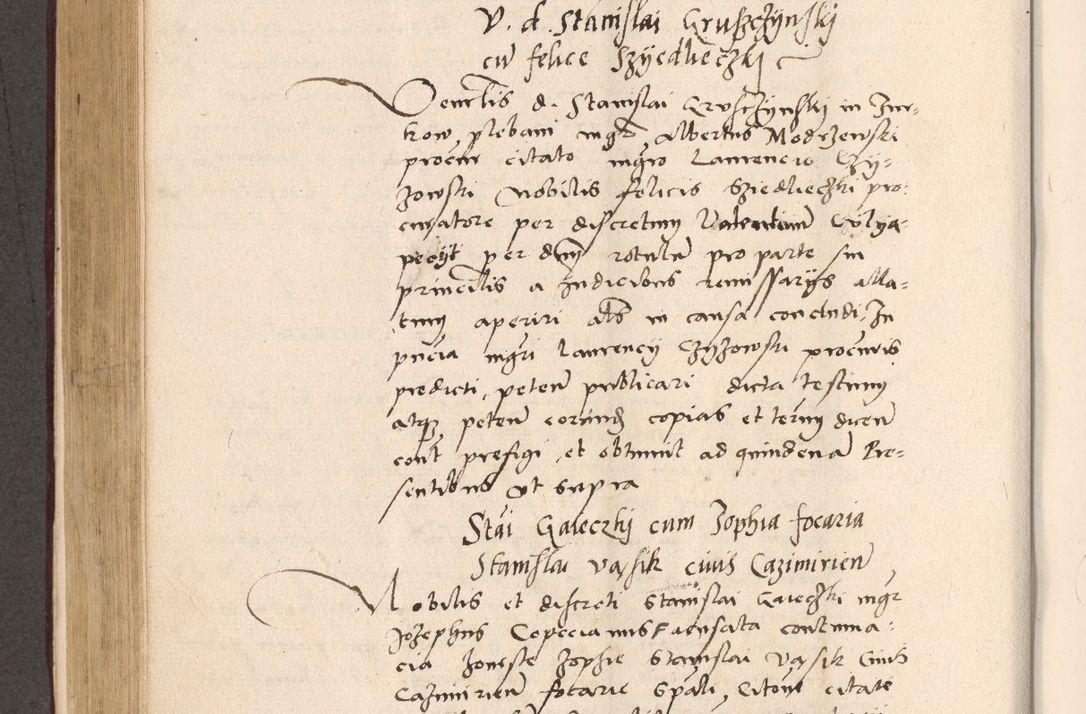 V. d. Stanislai Gruszczynski
cu felice Szyedlieczki
Venerlis d. Stanislai Gruszczynski in Zur-
kow plebani mgr Albertus Modrzewski
procur citato mgro Laurencio Czy-
zowski Nobilis felicis Sziedlieczki pro-
curatore per discretum Valentinu
petyt per dnm rotulu pro parte sui
principlis a Judicibus remissarys alla-
tum aperiri als in causa concludi. In
pncia mgri Laurency Czyzowski procuris
predicti, peten publicari dicta testium
atqz peten eorund copias et termi dicen
cont prefigi, et obtinuit ad quindena Pre-
sentibus ut supra
Stai Gaieczky cum Zophia focaria
Stanislai Vassik ciuis Cazimirien
Nobilis et discreti Stanislai Gaieczki mgr
Jozephus accusata contuma-
cia honeste Zophie Stanislai Vassik Ciuis
Cazimirien focarie Spali, citone citate